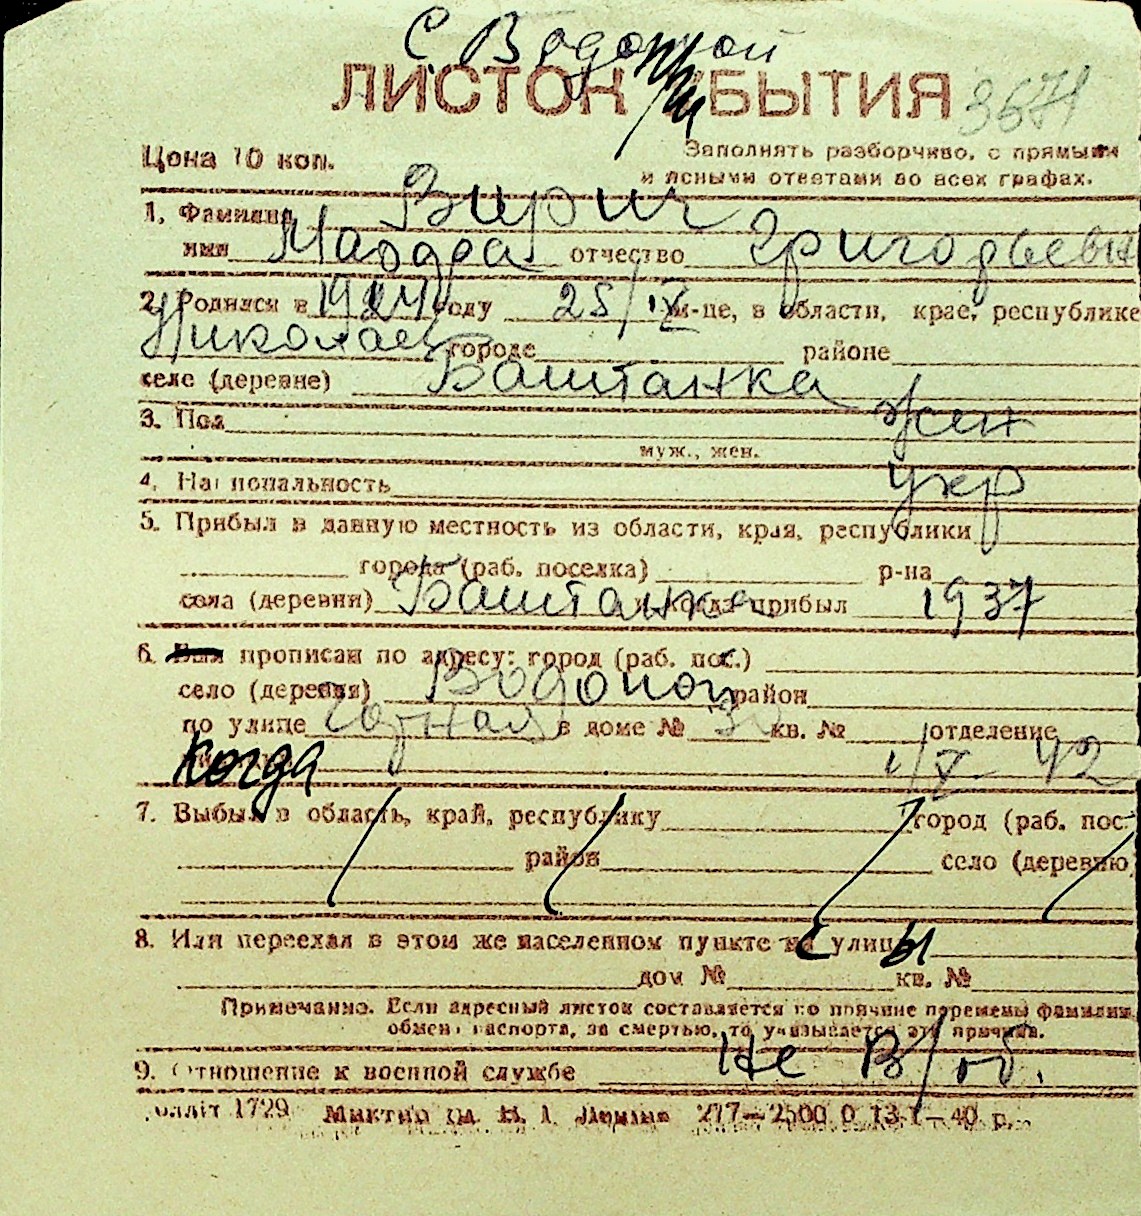 С. Водопой
ЛИСТОК БЫТИЯ 3671
Цена 10 коп. Заполнять разборчиво, с прямыми
и ясными ответами во всех графах.
1. Фамилия Вирич
имя отчество Григорьевн
2. Родился в 1924 году 25/IX м-це, в области, крае, республике
Николаев городе районе
селе (деревне) Баштанка
3. Пол жен
муж., жен.
4. Национальность укр
5. Прибыл в данную местность из области, края, республики
города (раб. поселка) р-на
села (деревни) Баштанка и когда прибыл 1937
6. Был прописан по адресу: город (раб. пос.)
село (деревня) Водопой район
по улице Горная в доме № 30 кв. № отделение
когда 1/X 42
7. Выбыл в область, край, республику город (раб. пос.
район село (деревню)
8. Или переехал в этом же населенном пункте с улицы
дом № кв. №
Примечание. Если адресный листок составляется по причине перемены фамилии,
обмена паспорта, за смертью, то указывается эта причина.
9. Отношение к военной службе не в/об.
1729 277—2500 0 13-I—40 р.